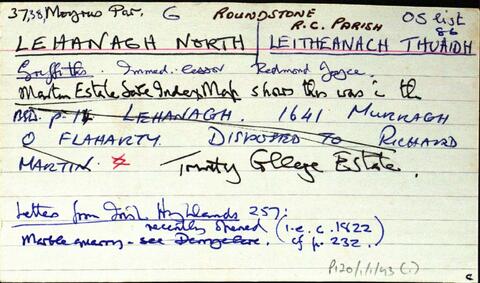 3738, Moyrus Par. G ROUNDSTONE R.C. PARISH OS list 86
LEHANAGH NORTH LEITHEANACH THUAIDH
Griffiths. Immed. lessor Redmond Joyce.
Martin Estate Sale Index Map shows this was in the
BSD. p. LEHANAGH. 1641 MURRAGH
O FLAHARTY. DISPOSED TO RICHARD
MARTIN. Trinity College Estate.
Letters from Irish Highlands 257:
recently opened (i.e. c. 1822
Marble quarry. - see Derryclare. cf p. 232.)
P120/1/1/43 (i)
c